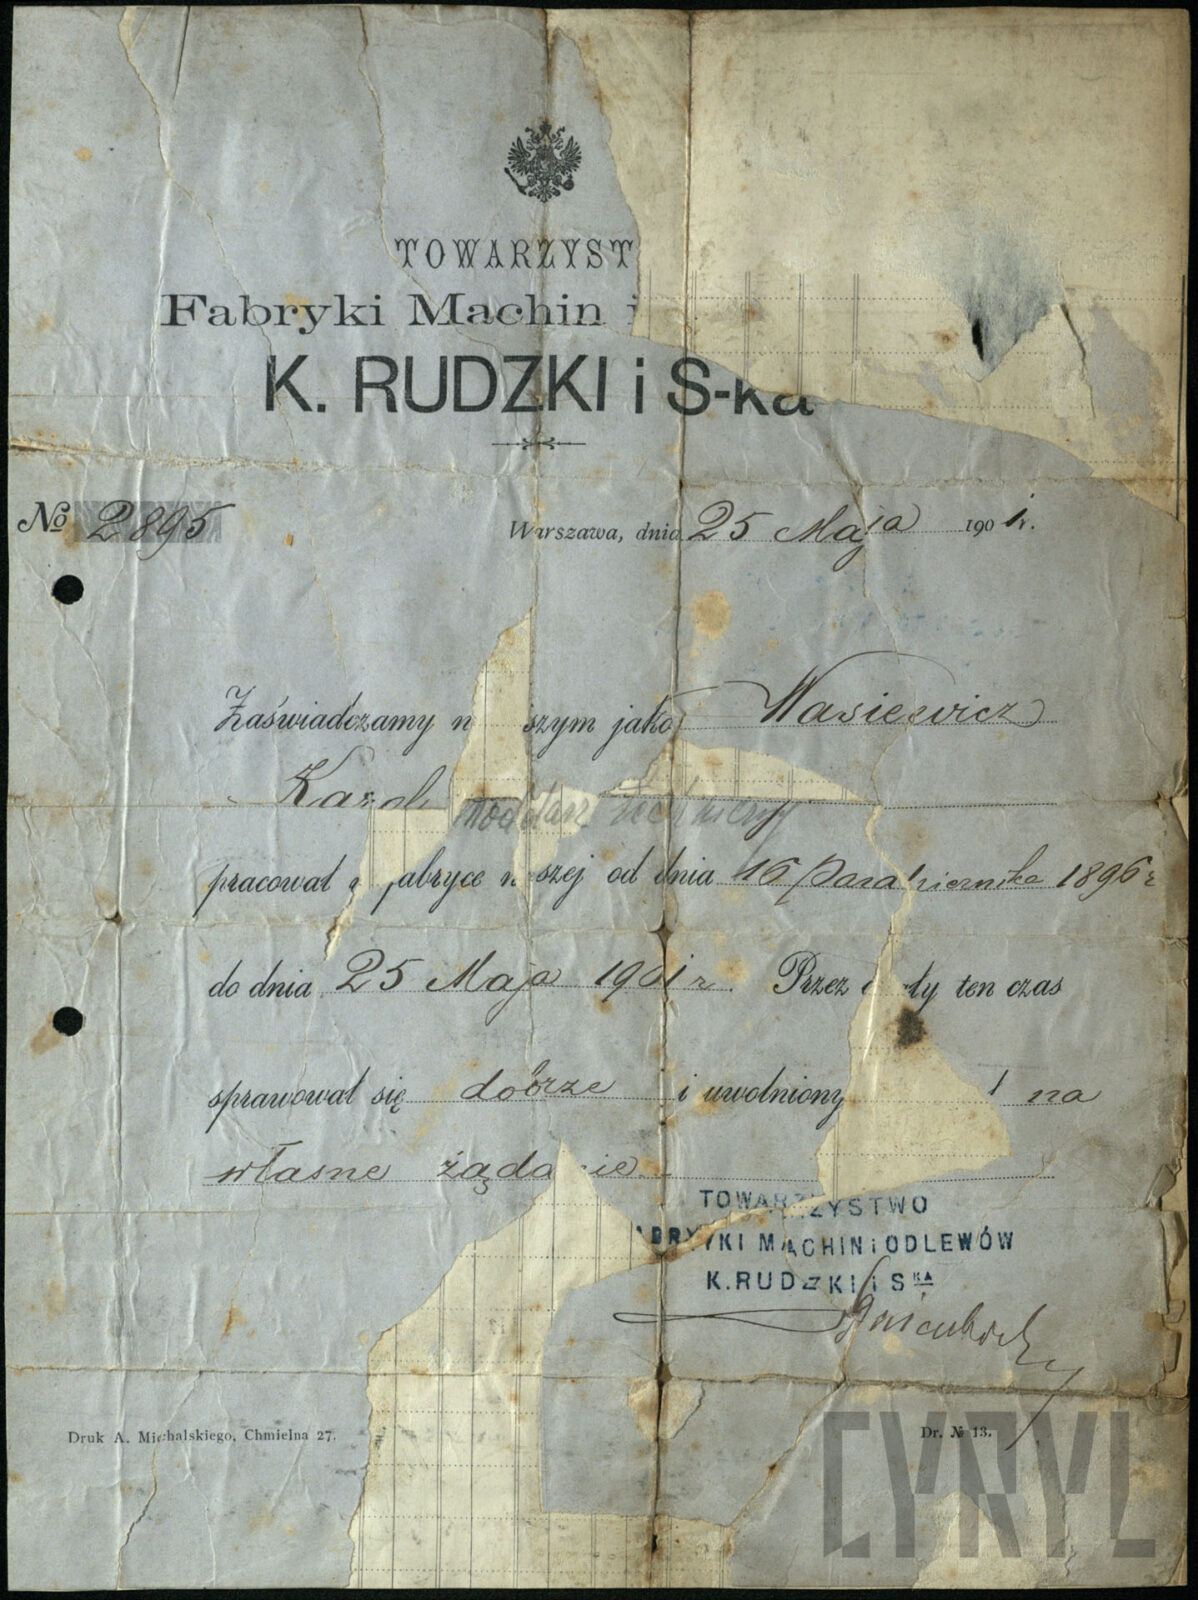 TOWARZYST
Fabryki Machin i
K. RUDZKI i S-ka
No 2895
Warszawa, dnia 25 Maja 1901 r.
Zaświadczamy n szym jako Wasiewicz
Karol
pracował fabryce n szej od dnia 16 Października 1896 r
do dnia 25 Maja 1901 r. Przez c ły ten czas
sprawował się dobrze i uwolniony ł na
własne żąda ie
TOWARZYSTWO
ABRYKI MACHIN i ODLEWÓW
K. RUDZKI i S KA
Druk A. Michalskiego, Chmielna 27.
Dr. № 13.
CYRYL